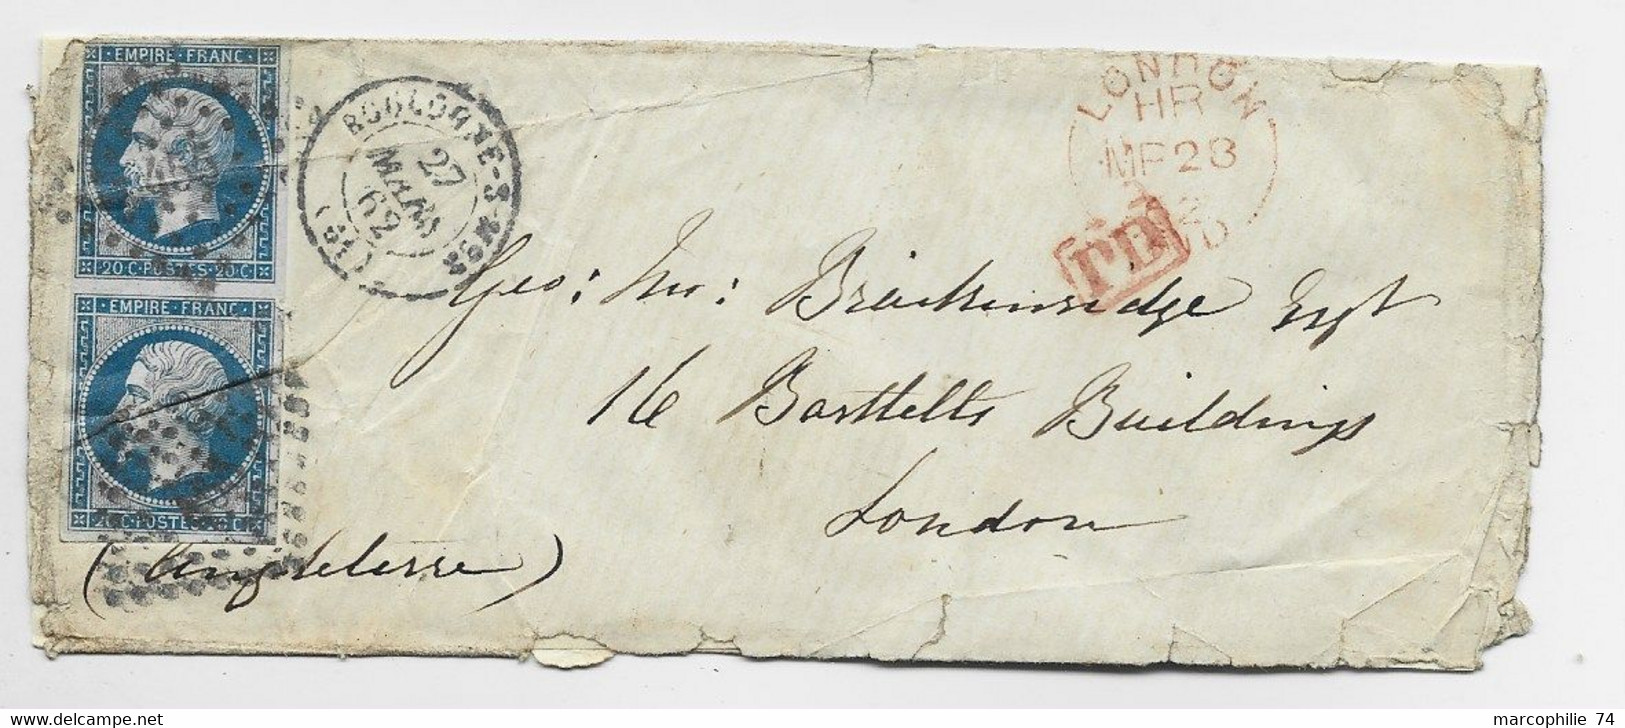 EMPIRE · FRANC ·
20 C · POSTES · 20 C ·
EMPIRE · FRANC ·
20 C · POSTES · 20 C ·
BOULOGNE-S-
27
MARS
62
LONDON
HR
MR 28
2
PD
Geo: Brackenridge Esqr
16 Bartletts Buildings
London
(Angleterre)
marcophilie 74